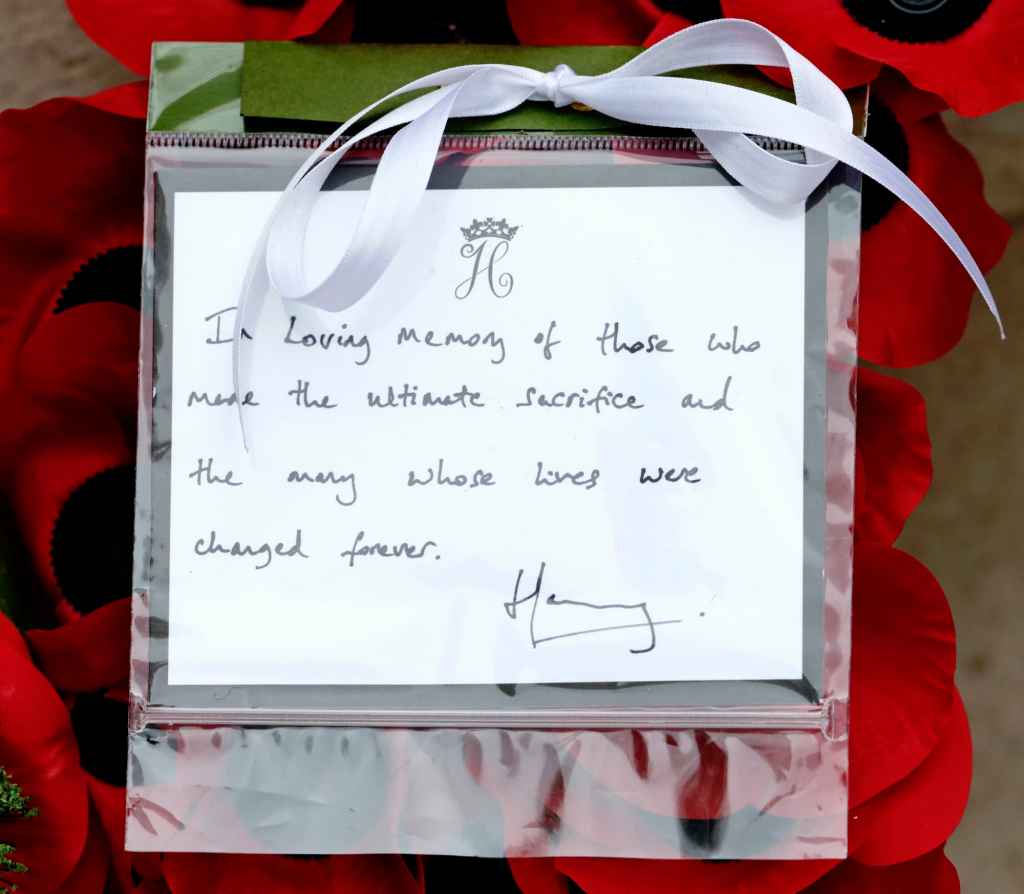 H
In Loving memory of those who
made the ultimate sacrifice and
the many whose lives were
changed forever.
Harry.